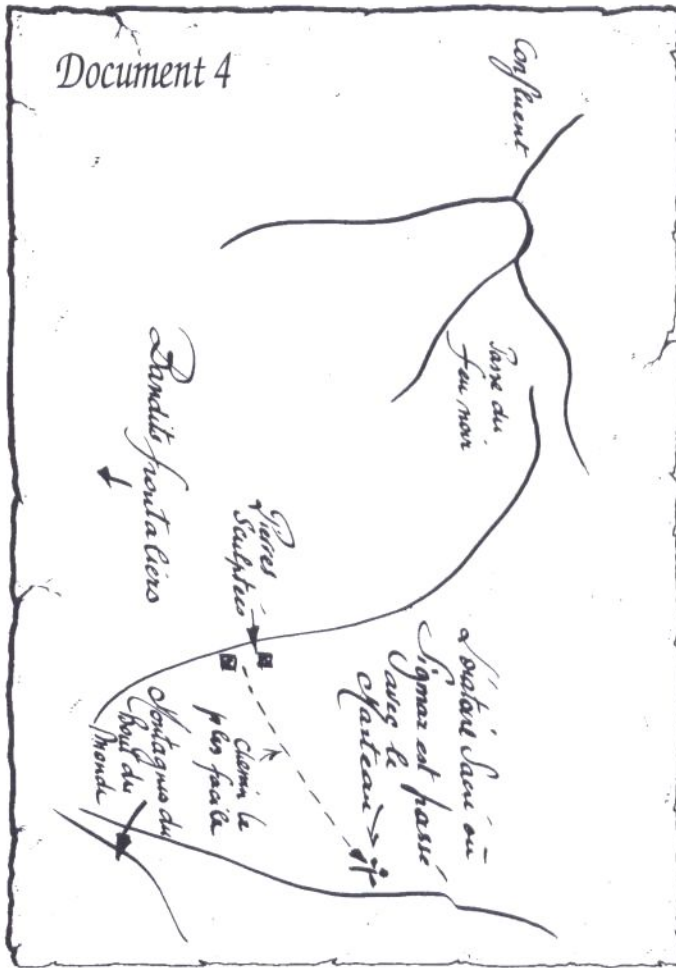 Document 4
Confluent
Passe du
feu noir
Bandits frontaliers
Pierres
Sculptées
L'oratoire Sacré où
Sigmar est passé
avec le
Marteau
Chemin le
plus facile
Montagnes du
Bout du
Monde